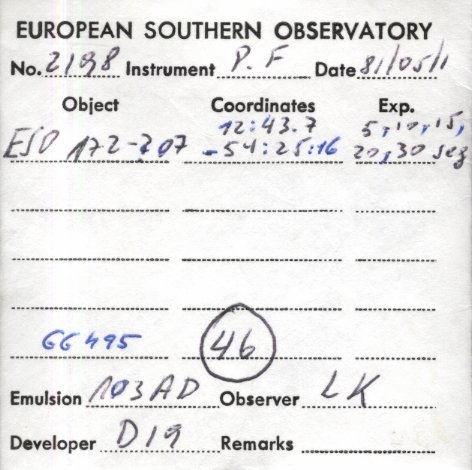 EUROPEAN SOUTHERN OBSERVATORY
No. 2198 Instrument P.F Date 81/05/1
Object Coordinates Exp.
12:43.7 5,10,15,
ESO 172-207 -54:25:16 20,30 seg
GG495 46
Emulsion 103AD Observer LK
Developer D19 Remarks